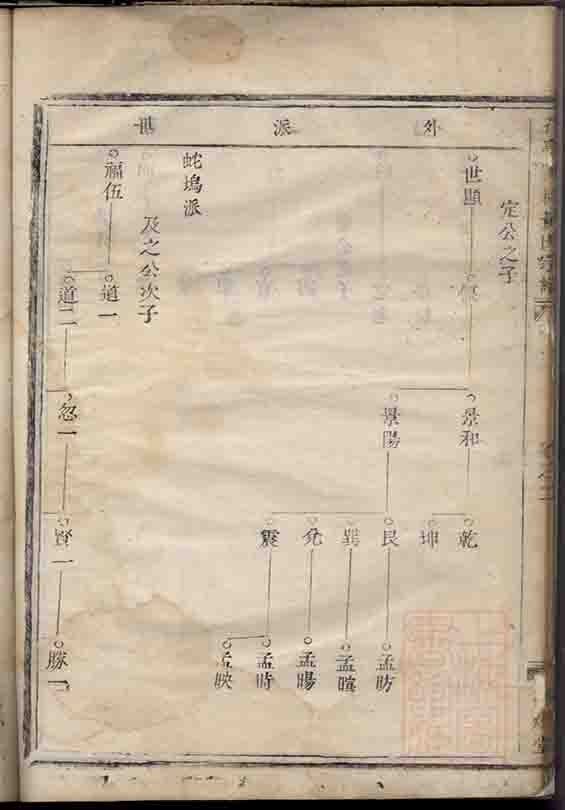 外派世
定公之子
世顯
景和
景陽
乾
坤
艮
巽
兌
震
孟昉
孟暘
孟時
孟映
蛇塢派
及之公次子
福伍
道一
道二
忽一
賢一